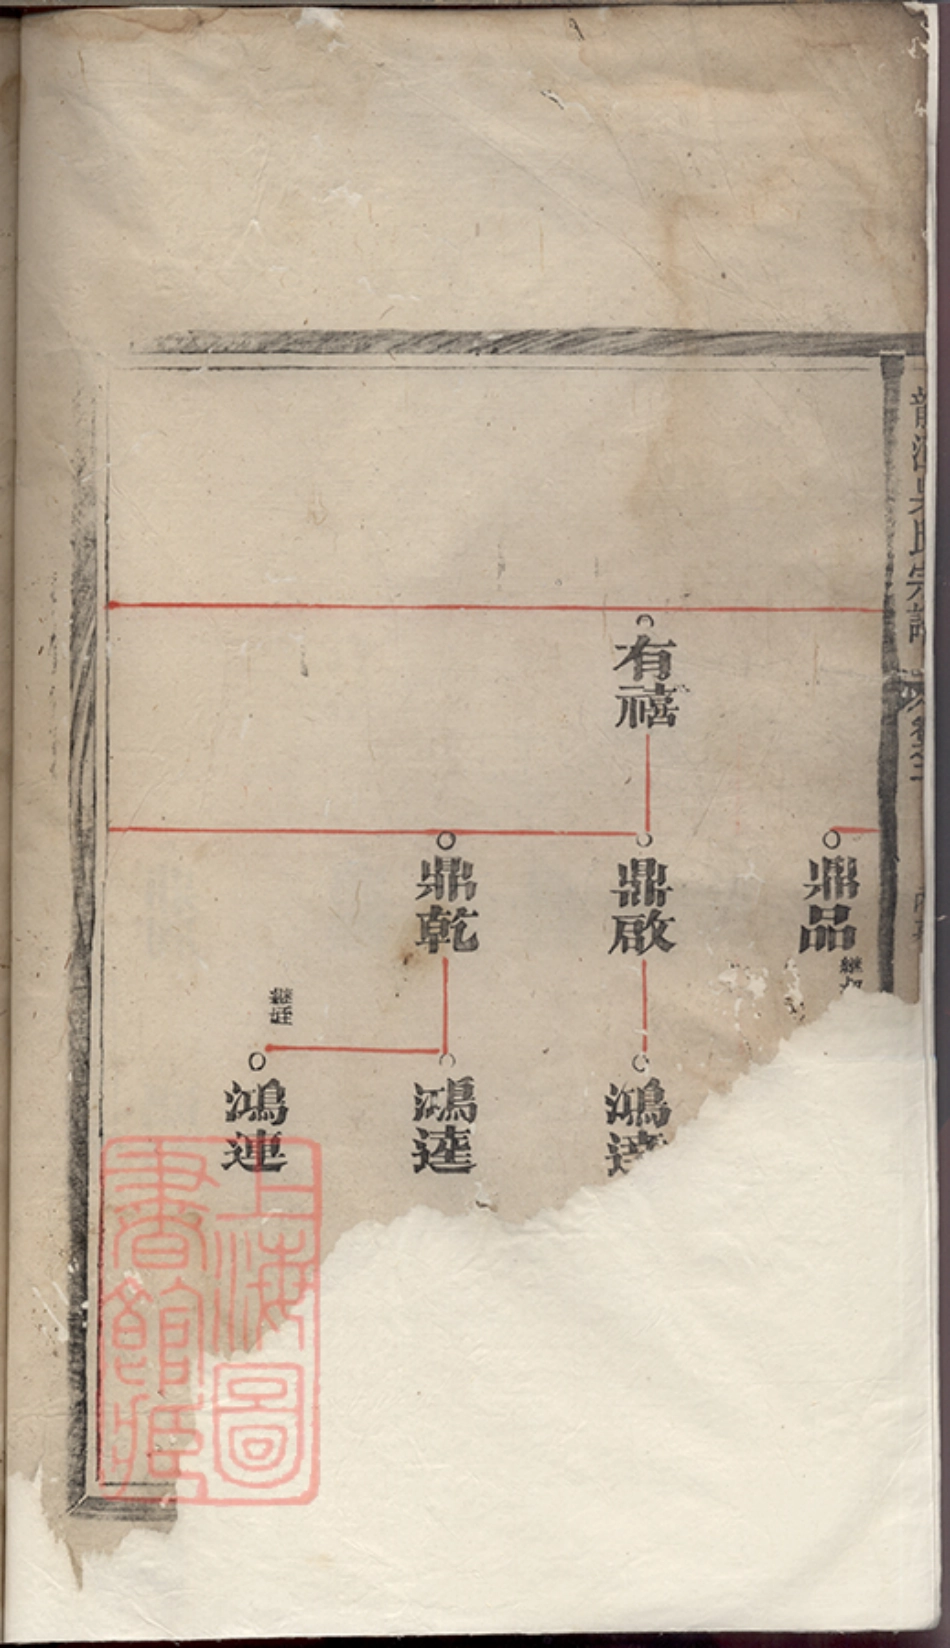 吳氏宗譜
卷二
有禧
鼎品
繼
鼎啟
鼎乾
鴻達
鴻逵
繼
鴻連
上海圖
書館藏